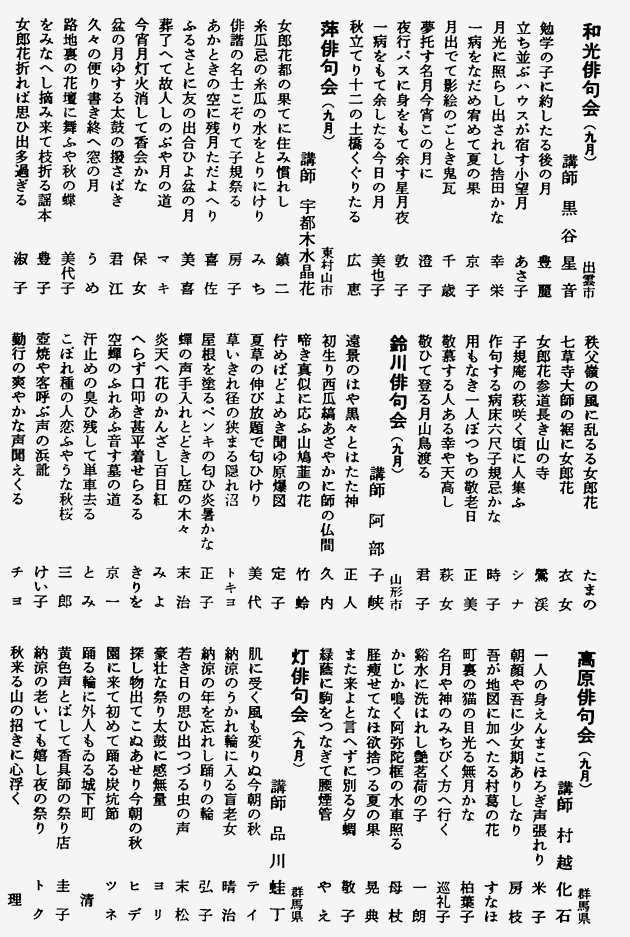 和光俳句会（九月）
出雲市
講師　黒谷星音
勉学の子に約したる後の月　豊麗
立ち並ぶハウスが宿す小望月　あさ子
月光に照らし出されし捨田かな　幸栄
一病をなだめ宥めて夏の果　京子
月出でて影絵のごとき鬼瓦　千歳
夢托す名月今宵この月に　澄子
夜行バスに身をもて余す星月夜　敦子
一病をもて余したる今日の月　美也子
秋立てり十二の土橋くぐりたる　広恵
萍俳句会（九月）
東村山市
講師　宇都木水晶花
女郎花都の果てに住み慣れし　鎮二
糸瓜忌の糸瓜の水をとりにけり　みち
俳諧の名士こぞりて子規祭る　房子
あかときの空に残月ただよへり　喜佐
ふるさとに友の出合ひよ盆の月　美喜
葬了へて故人しのぶや月の道　マキ
今宵月灯火消して香会かな　保女
盆の月ゆする太鼓の撥さばき　君江
久々の便り書き終へ窓の月　うめ
路地裏の花壇に舞ふや秋の蝶　美代子
をみなへし摘み来て枝折る謡本　豊子
女郎花折れば思ひ出多過ぎる　淑子
秩父嶺の風に乱るる女郎花　たまの
七草寺大師の裾に女郎花　衣女
女郎花参道長き山の寺　鶯渓
子規庵の萩咲く頃に人集ふ　シナ
作句する病床六尺子規忌かな　時子
用もなき一人ぼつちの敬老日　正美
敬慕する人ある幸や天高し　萩女
敬ひて登る月山鳥渡る　君子
鈴川俳句会（九月）
山形市
講師　阿部子峡
遠景のはや黒々とはたた神　正人
初生り西瓜縞あざやかに師の仏間　久内
啼き真似に応ふ山鳩韮の花　竹蛉
佇めばどよめき聞ゆ原爆図　定子
夏草の伸び放題で匂ひけり　美代
草いきれ径の狭まる隠れ沼　トキヨ
屋根を塗るペンキの匂ひ炎暑かな　正子
蟬の声手入れとどきし庭の木々　末治
炎天へ花のかんざし百日紅　みよ
へらず口叩き甚平着せらるる　きりを
空蟬のふれあふ音す墓の道　京一
汗止めの臭ひ残して単車去る　とみ
こぼれ種の人恋ふやうな秋桜　三郎
壺焼や客呼ぶ声の浜訛　けい子
勤行の爽やかな声聞えくる　チヨ
高原俳句会（九月）
群馬県
講師　村越化石
一人の身えんまこほろぎ声張れり　米子
朝顔や吾に少女期ありしなり　房枝
吾が地図に加へたる村葛の花　すなほ
町裏の猫の目光る無月かな　柏葉子
名月や神のみちびく方へ行く　巡礼子
谿水に洗はれし艶茗荷の子　一朗
かじか鳴く阿弥陀框の水車照る　母杖
胫痩せてなほ欲捨つる夏の果　晃典
また来よと言へずに別る夕蜩　敬子
緑蔭に駒をつなぎて腰煙管　やえ
灯俳句会（九月）
群馬県
講師　品川蛙丁
肌に受く風も変りぬ今朝の秋　テイ
納涼のうかれ輪に入る盲老女　晴治
納涼の年を忘れし踊りの輪　弘子
若き日の思ひ出つづる虫の声　末松
豪壮な祭り太鼓に感無量　ヨリ
探し物出てこぬあせり今朝の秋　ヒデ
園に来て初めて踊る炭坑節　ツネ
踊る輪に外人もゐる城下町　清
黄色声とばして香具師の祭り店　圭子
納涼の老いても嬉し夜の祭り　トク
秋来る山の招きに心浮く　理